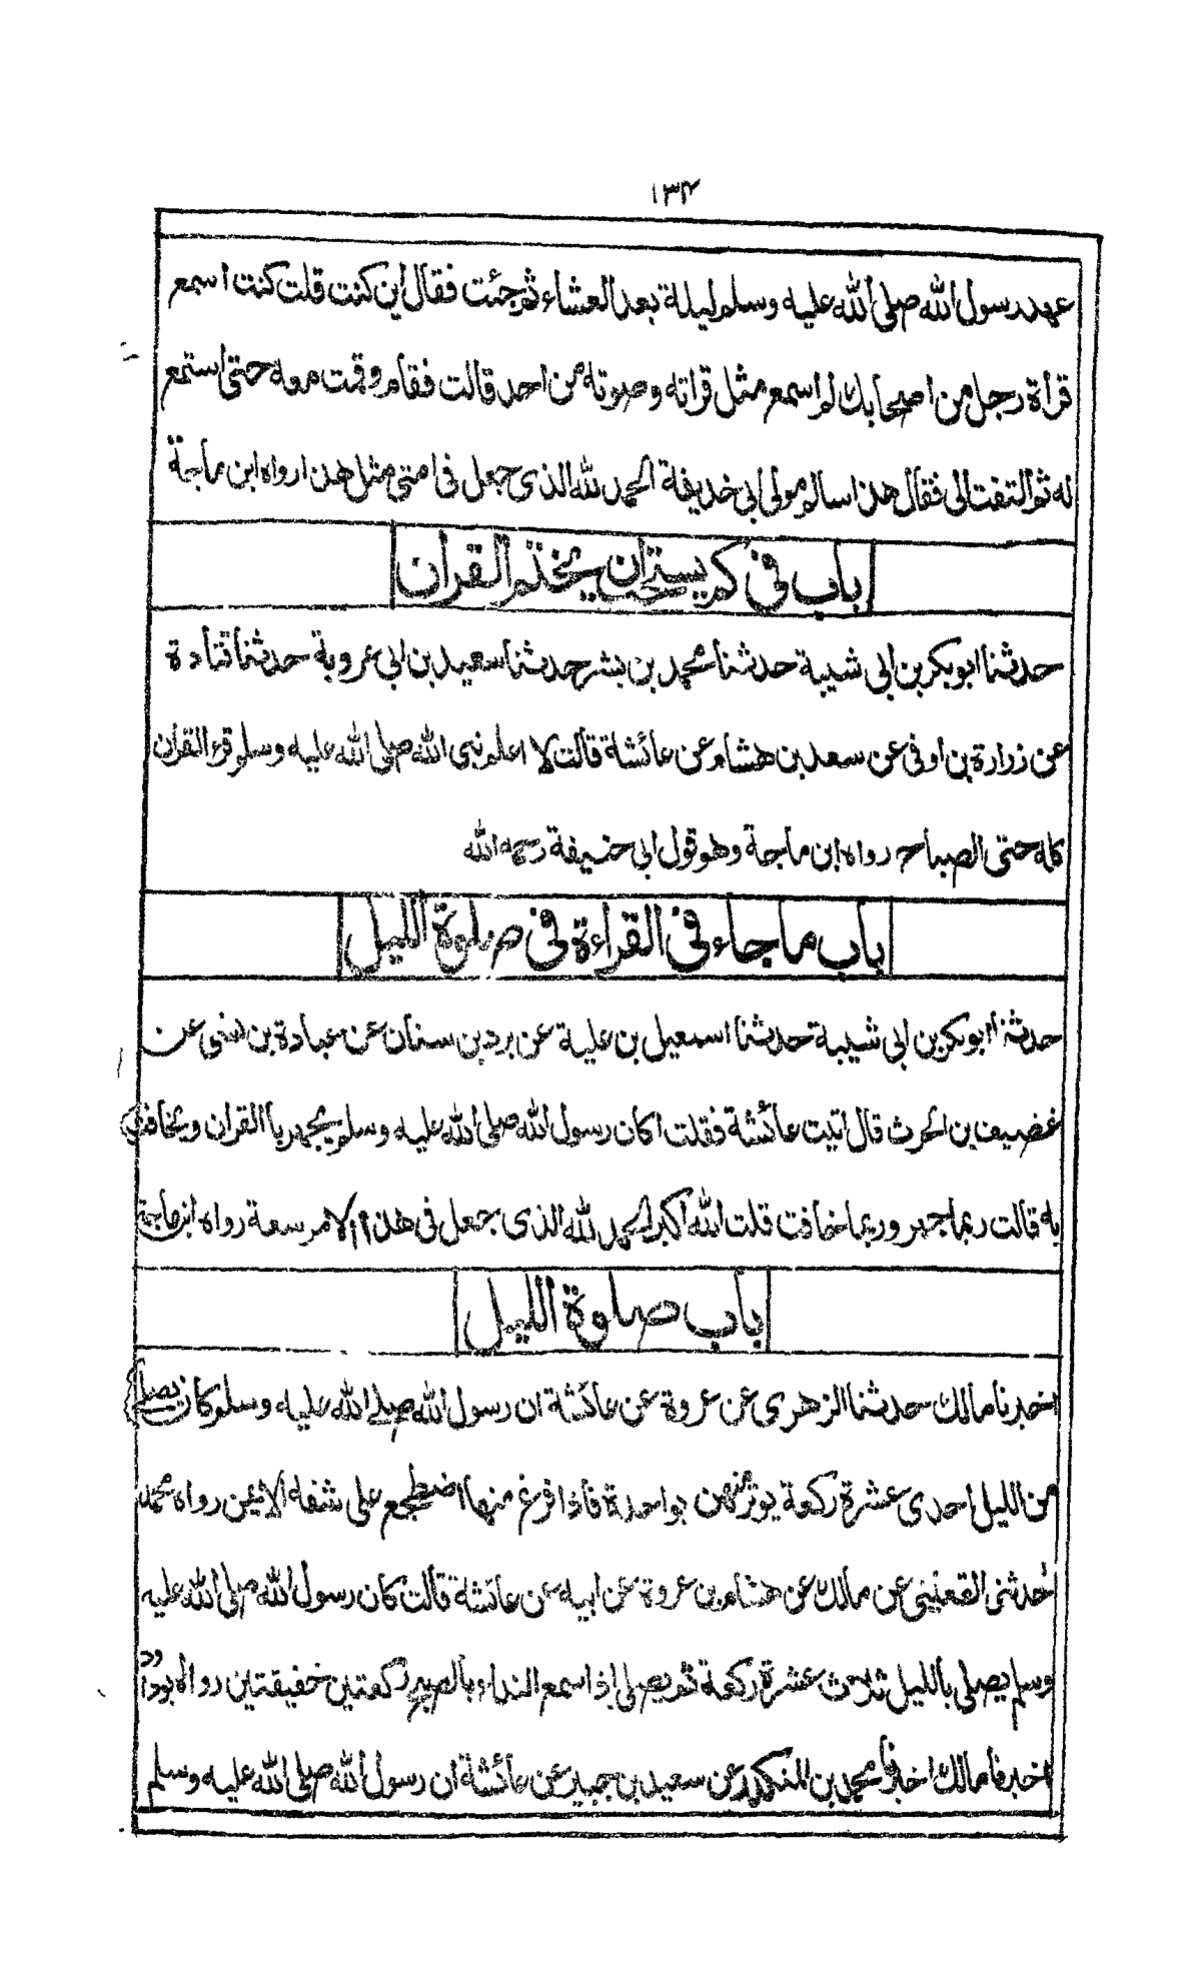 ١٣٤
عهد رسول الله صلى الله عليه وسلم ليلة بعد العشاء ثم جئت فقال اين كنت قلت كنت اسمع
قرأة رجل من اصحابك لم اسمع مثل قراته وصوته من احد قالت فقام وقمت معه حتى استمع
له ثم التفت الى فقال هذا سالم مولى ابى خذيفة الحمد لله الذى جعل فى امتى مثل هذا رواه ابن ماجة
باب فى كم يستحب ان يختم القرآن
حدثنا ابوبكر بن ابى شيبة حدثنا محمد بن بشر حدثنا سعيد بن ابى عروبة حدثنا قتادة
عن زرارة بن اوفى عن سعد بن هشام عن عائشة قالت لا اعلم نبى الله صلى الله عليه وسلم قرء القرآن
كله حتى الصباح رواه ابن ماجة وهو قول ابى حنيفة رحمه الله
باب ما جاء فى القراءة فى صلوة الليل
حدثنا ابوبكر بن ابى شيبة حدثنا اسمعيل بن علية عن برد بن سنان عن عبادة بن نسى عن
غضيف بن الحرث قال اتيت عائشة فقلت اكان رسول الله صلى الله عليه وسلم يجهر بالقران ويخافت
به قالت ربما جهر وربما خافت قلت الله اكبر الحمد لله الذى جعل فى هذا الامر سعة رواه ابن ماجة
باب صلوة الليل
اخبرنا مالك حدثنا الزهرى عن عروة عن عائشة ان رسول الله صلى الله عليه وسلم كان يصلى
من الليل احدى عشرة ركعة يوتر منهن بواحدة فاذا فرغ منها اضطجع على شقه الايمن رواه محمد
حدثنى القعنبى عن مالك عن هشام بن عروة عن ابيه عن عائشة قالت كان رسول الله صلى الله عليه
وسلم يصلى بالليل ثلاث عشرة ركعة ثم يصلى اذا سمع النداء بالصبح ركعتين خفيفتين رواه ابوداود
اخبرنا مالك اخبرنا محمد بن المنكدر عن سعيد بن جبير عن عائشة ان رسول الله صلى الله عليه وسلم